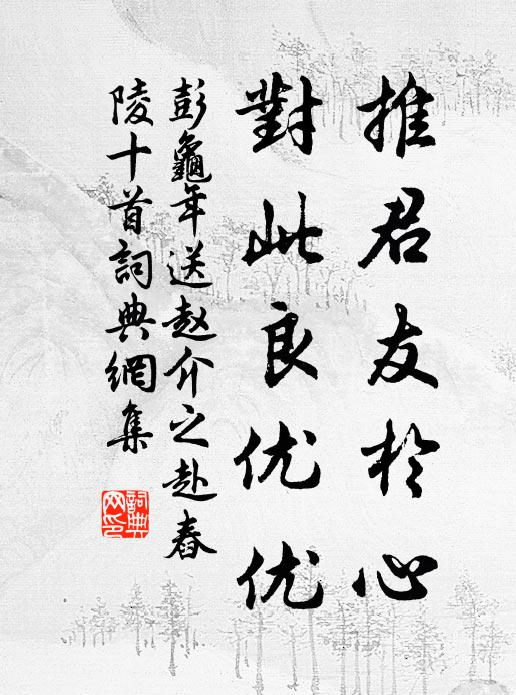 推君友於心
對此良优优
彭龜年送赵介之赴舂
陵十首詞典網集
詞典
网印